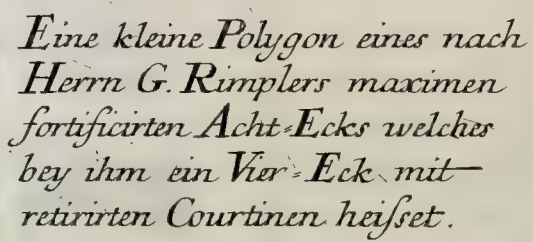 Eine kleine Polygon eines nach
Herrn G. Rimplers maximen
fortificirten Acht-Ecks welches
bey ihm ein Vier-Eck mit
retirirten Courtinen heiſset.